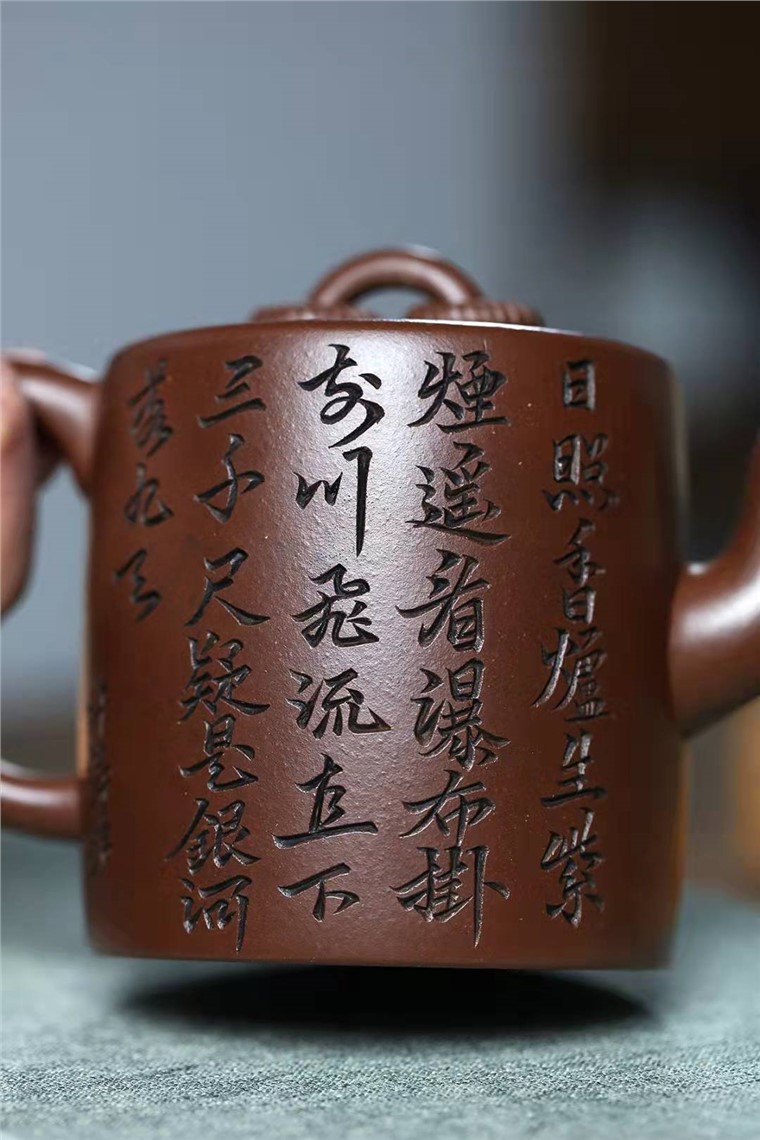 日照香爐生紫
煙遥看瀑布掛
前川飛流直下
三千尺疑是銀河
落九天